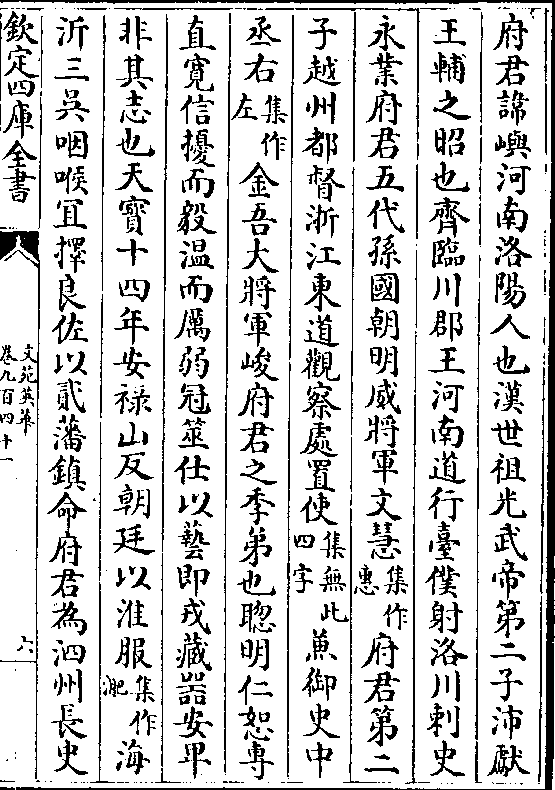 府君諱嶼河南洛陽人也漢世祖光武帝第二子沛獻
王輔之昭也齊臨川郡王河南道行臺僕射洛川刺史
永業府君五代孫國朝明威將軍文慧集作惠府君第二
子越州都督浙江東道觀察處置使集無此四字兼御史中
丞右集作左金吾大將軍峻府君之季弟也聰明仁恕專
直寬信擾而毅溫而厲弱冠筮仕以藝即戎藏器安卑
非其志也天寶十四年安祿山反朝廷以淮服集作淝海
沂三吳咽喉宜擇良佐以貳藩鎮命府君為泗州長史
欽定四庫全書
文苑英華
卷九百四十一
六